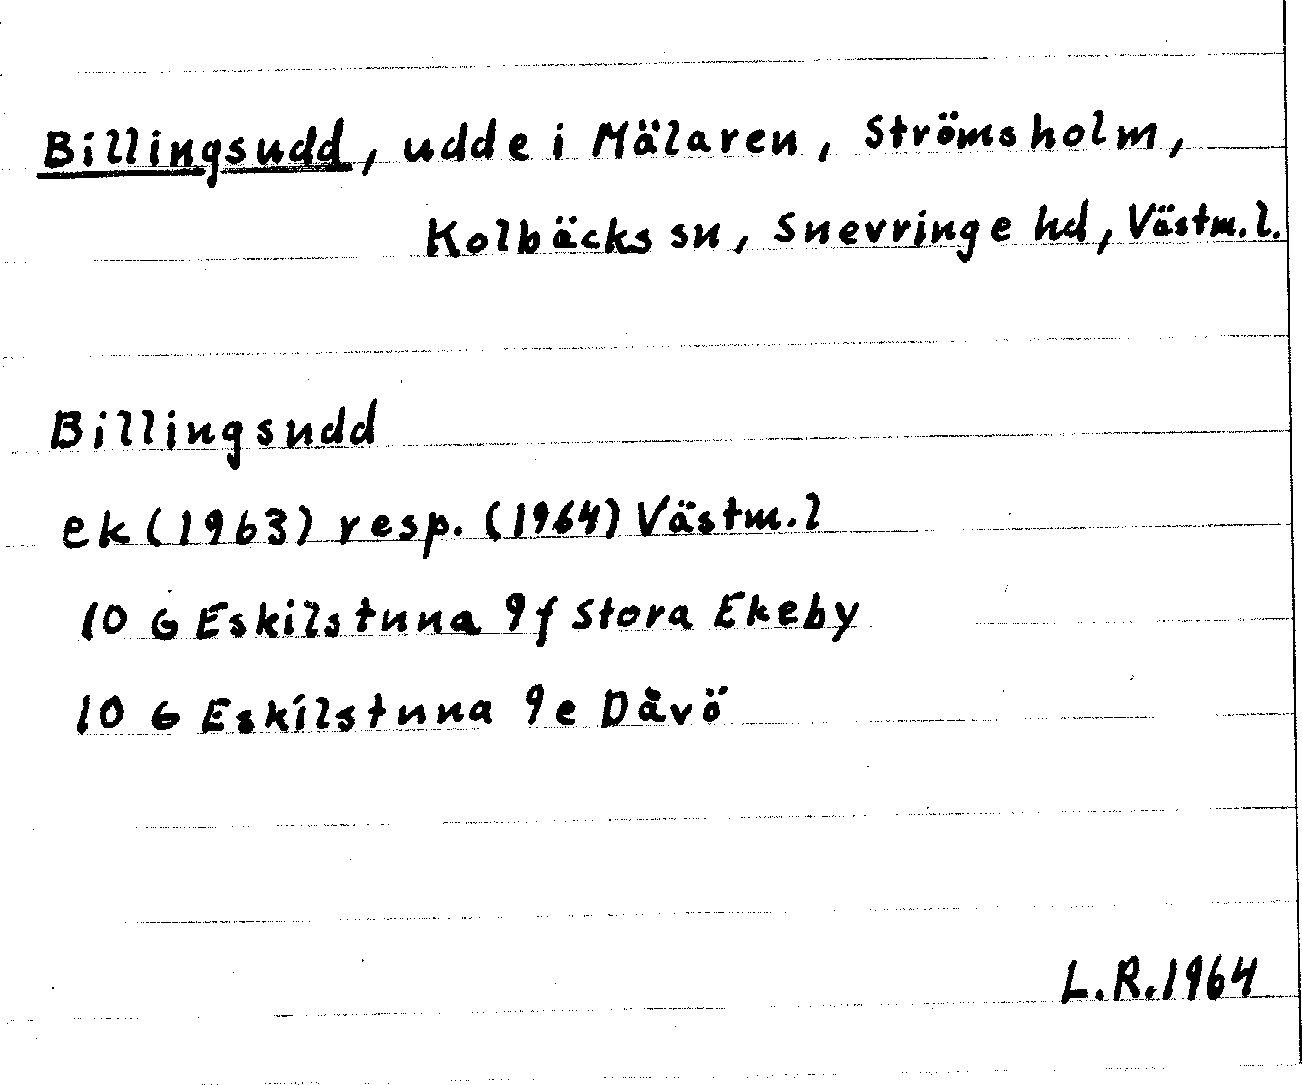 Billingsudd, udde i Mälaren, Strömsholm,
Kolbäcks sn, Snevringe hd, Västm. l.
Billingsudd
ek (1963) resp. (1964) Västm. l
10 G Eskilstuna 9f Stora Ekeby
10 G Eskilstuna 9e Dåvö
L.R. 1964